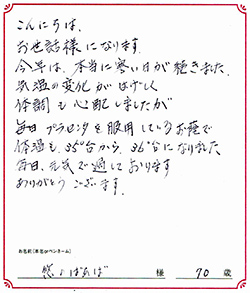 こんにちは、
お世話様になります。
今年は、本当に寒い日が続きました。
気温の変化がはげしく
体調も心配しましたが
毎日プラセンタを服用しているお蔭で
体温も35°台から、36°台になりました
毎日、元気で過しております
ありがとうございます。
お名前(本名orペンネーム)
ばあば 様 70 歳